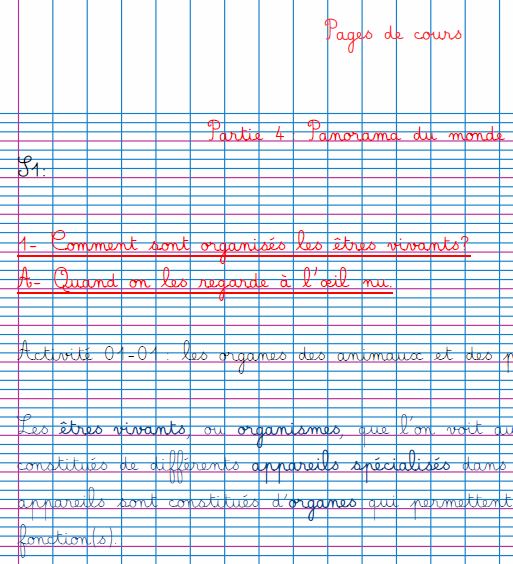 Pages de cours
Partie 4 Panorama du monde
S1:
1- Comment sont organisés les êtres vivants?
A- Quand on les regarde à l'œil nu.
Activité 01-01 : les organes des animaux et des p
Les êtres vivants, ou organismes, que l'on voit au
constitués de différents appareils spécialisés dans
appareils sont constitués d'organes qui permettent
fonction(s).